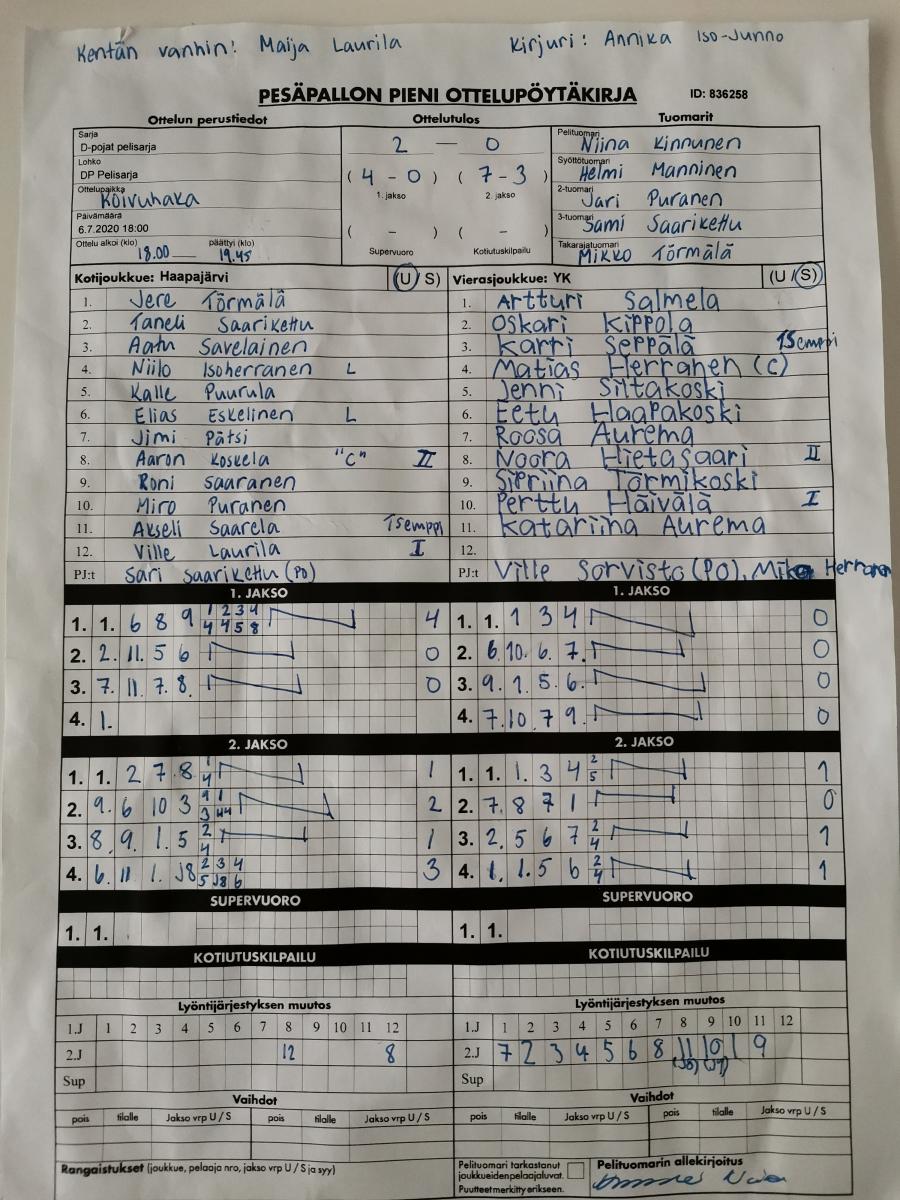 Kentän vanhin: Maija Laurila Kirjuri: Annika Iso-Junno
PESÄPALLON PIENI OTTELUPÖYTÄKIRJA ID: 836258
Ottelun perustiedot Ottelutulos Tuomarit
Sarja
D-pojat pelisarja
Lohko
DP Pelisarja
Ottelupaikka
Koivuhaka
Päivämäärä
6.7.2020 18:00
Ottelu alkoi (klo) päättyi (klo)
18.00 19.45
2 — 0
(4 - 0) (7 - 3)
1. jakso 2. jakso
( - ) ( - )
Supervuoro Kotiutuskilpailu
Pelituomari
Niina Kinnunen
Syöttötuomari
Helmi Manninen
2-tuomari
Jari Puranen
3-tuomari
Sami Saarikettu
Takarajatuomari
Mikko Törmälä
Kotijoukkue: Haapajärvi (U/S)
1. Jere Törmälä
2. Taneli Saarikettu
3. Aatu Savelainen
4. Niilo Isoherranen L
5. Kalle Puurula
6. Elias Eskelinen L
7. Jimi Pätsi
8. Aaron Koskela "C" II
9. Roni Saaranen
10. Miro Puranen
11. Akseli Saarela Tsemppi
12. Ville Laurila I
PJ:t Sari Saarikettu (PO)
Vierasjoukkue: YK (U/S)
1. Artturi Salmela
2. Oskari Kippola
3. Kartti Seppälä Tsemppi
4. Matias Herranen (C)
5. Jenni Siltakoski
6. Eetu Haapakoski
7. Roosa Aurema
8. Noora Hietasaari II
9. Sipriina Tormikoski
10. Perttu Häivälä I
11. Katariina Aurema
12.
PJ:t Ville Sorvisto (PO), Mika Herranen
1. JAKSO
1. 1. 6 8 9 1 2 3 4 4
4 4 5 8
2. 2. 11. 5 6 0
3. 7. 11. 7. 8. 0
4. 1.
1. JAKSO
1. 1. 1 3 4 0
2. 6. 10. 6. 7. 0
3. 9. 1. 5. 6. 0
4. 7. 10. 7 9. 0
2. JAKSO
1. 1. 2 7 8 1 1
4
2. 9. 6 10 3 2
3. 8. 9. 1. 5 2 1
4
4. 6. 11 1. J8 2 3 4 3
5 J8 6
2. JAKSO
1. 1. 1. 3 4 2 1
5
2. 7. 8 7 1 0
3. 2. 5 6 7 2 1
4
4. 1. 1. 5 6 2 1
4
SUPERVUORO
1. 1.
SUPERVUORO
1. 1.
KOTIUTUSKILPAILU
KOTIUTUSKILPAILU
Lyöntijärjestyksen muutos
1.J 1 2 3 4 5 6 7 8 9 10 11 12
2.J 12 8
Sup
Lyöntijärjestyksen muutos
1.J 1 2 3 4 5 6 7 8 9 10 11 12
2.J 7 2 3 4 5 6 8 11 10 1 9
Sup
Vaihdot
pois tilalle Jakso vrp U / S pois tilalle Jakso vrp U / S
Vaihdot
pois tilalle Jakso vrp U / S pois tilalle Jakso vrp U / S
Rangaistukset (joukkue, pelaaja nro, jakso vrp U / S ja syy)
Pelituomari tarkastanut
joukkueiden pelaajaluvat.
Puutteet merkitty erikseen.
Pelituomarin allekirjoitus